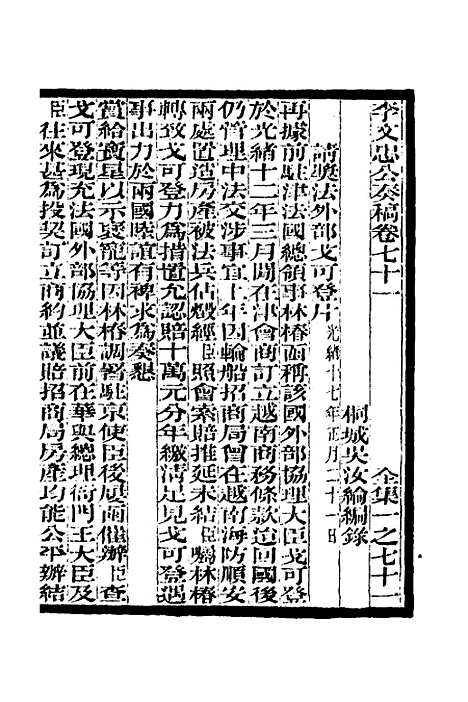 李文忠公奏稿卷七十一　全集一之七十一
桐城吳汝綸編錄
請獎法外部戈可登片光緒十七年正月二十一日
再據前駐津法國總領事林椿面稱該國外部協理大臣戈可登
於光緒十二年三月間在津會商訂立越南商務條款迨回國後
仍管理中法交涉事宜上年因輪船招商局曾在越南海防順安
兩處置造房產被法兵佔燬經臣照會索賠推延未結臣囑林椿
轉致戈可登力為措置允認賠十萬元分年繳清足見戈可登遇
事出力於兩國睦誼有裨求為奏懇
賞給寶星以示寵榮等因林椿調署駐京使臣後屢函催辦臣查
戈可登現充法國外部協理大臣前在華與總理衙門王大臣及
臣往來甚為投契訂立商約並議賠招商局房產均能公平辦結